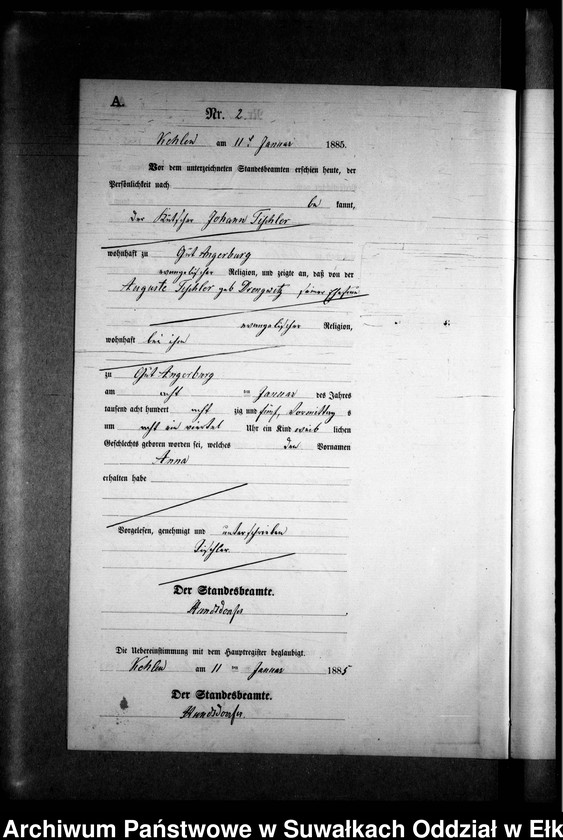 A.
Nr. 2.
Kehlen am 11 Januar 1885.
Vor dem unterzeichneten Standesbeamten erschien heute, der
Persönlichkeit nach
be kannt,
der Kutscher Johann Tischler
wohnhaft zu Gut Angerburg
evangelischer Religion, und zeigte an, daß von der
Auguste Tischler geb Drengwitz seiner Ehefrau
evangelischer Religion,
wohnhaft bei ihm
zu Gut Angerburg
am acht ten Januar des Jahres
tausend acht hundert acht zig und fünf, Vormittag s
um acht ein viertel Uhr ein Kind weib lichen
Geschlechts geboren worden sei, welches den Vornamen
Anna
erhalten habe
Vorgelesen, genehmigt und unterschrieben
Tischler
Der Standesbeamte.
Die Uebereinstimmung mit dem Hauptregister beglaubigt.
Kehlen am 11 ten Januar 1885
Der Standesbeamte.
Archiwum Państwowe w Suwałkach Oddział w Ełk